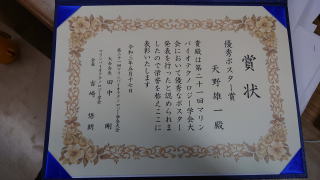 賞状
優秀ポスター賞
天野雄一殿
貴殿は第二十一回マリン
バイオテクノロジー学会大
会において優秀なポスター
発表を行ったと認められま
したので栄誉を称えここに
表彰いたします
令和元年五月十七日
第二十一回マリンバイオテクノロジー学会大会
大会会長 田中 剛
マリンバイオテクノロジー学会
会長 吉崎 悟朗